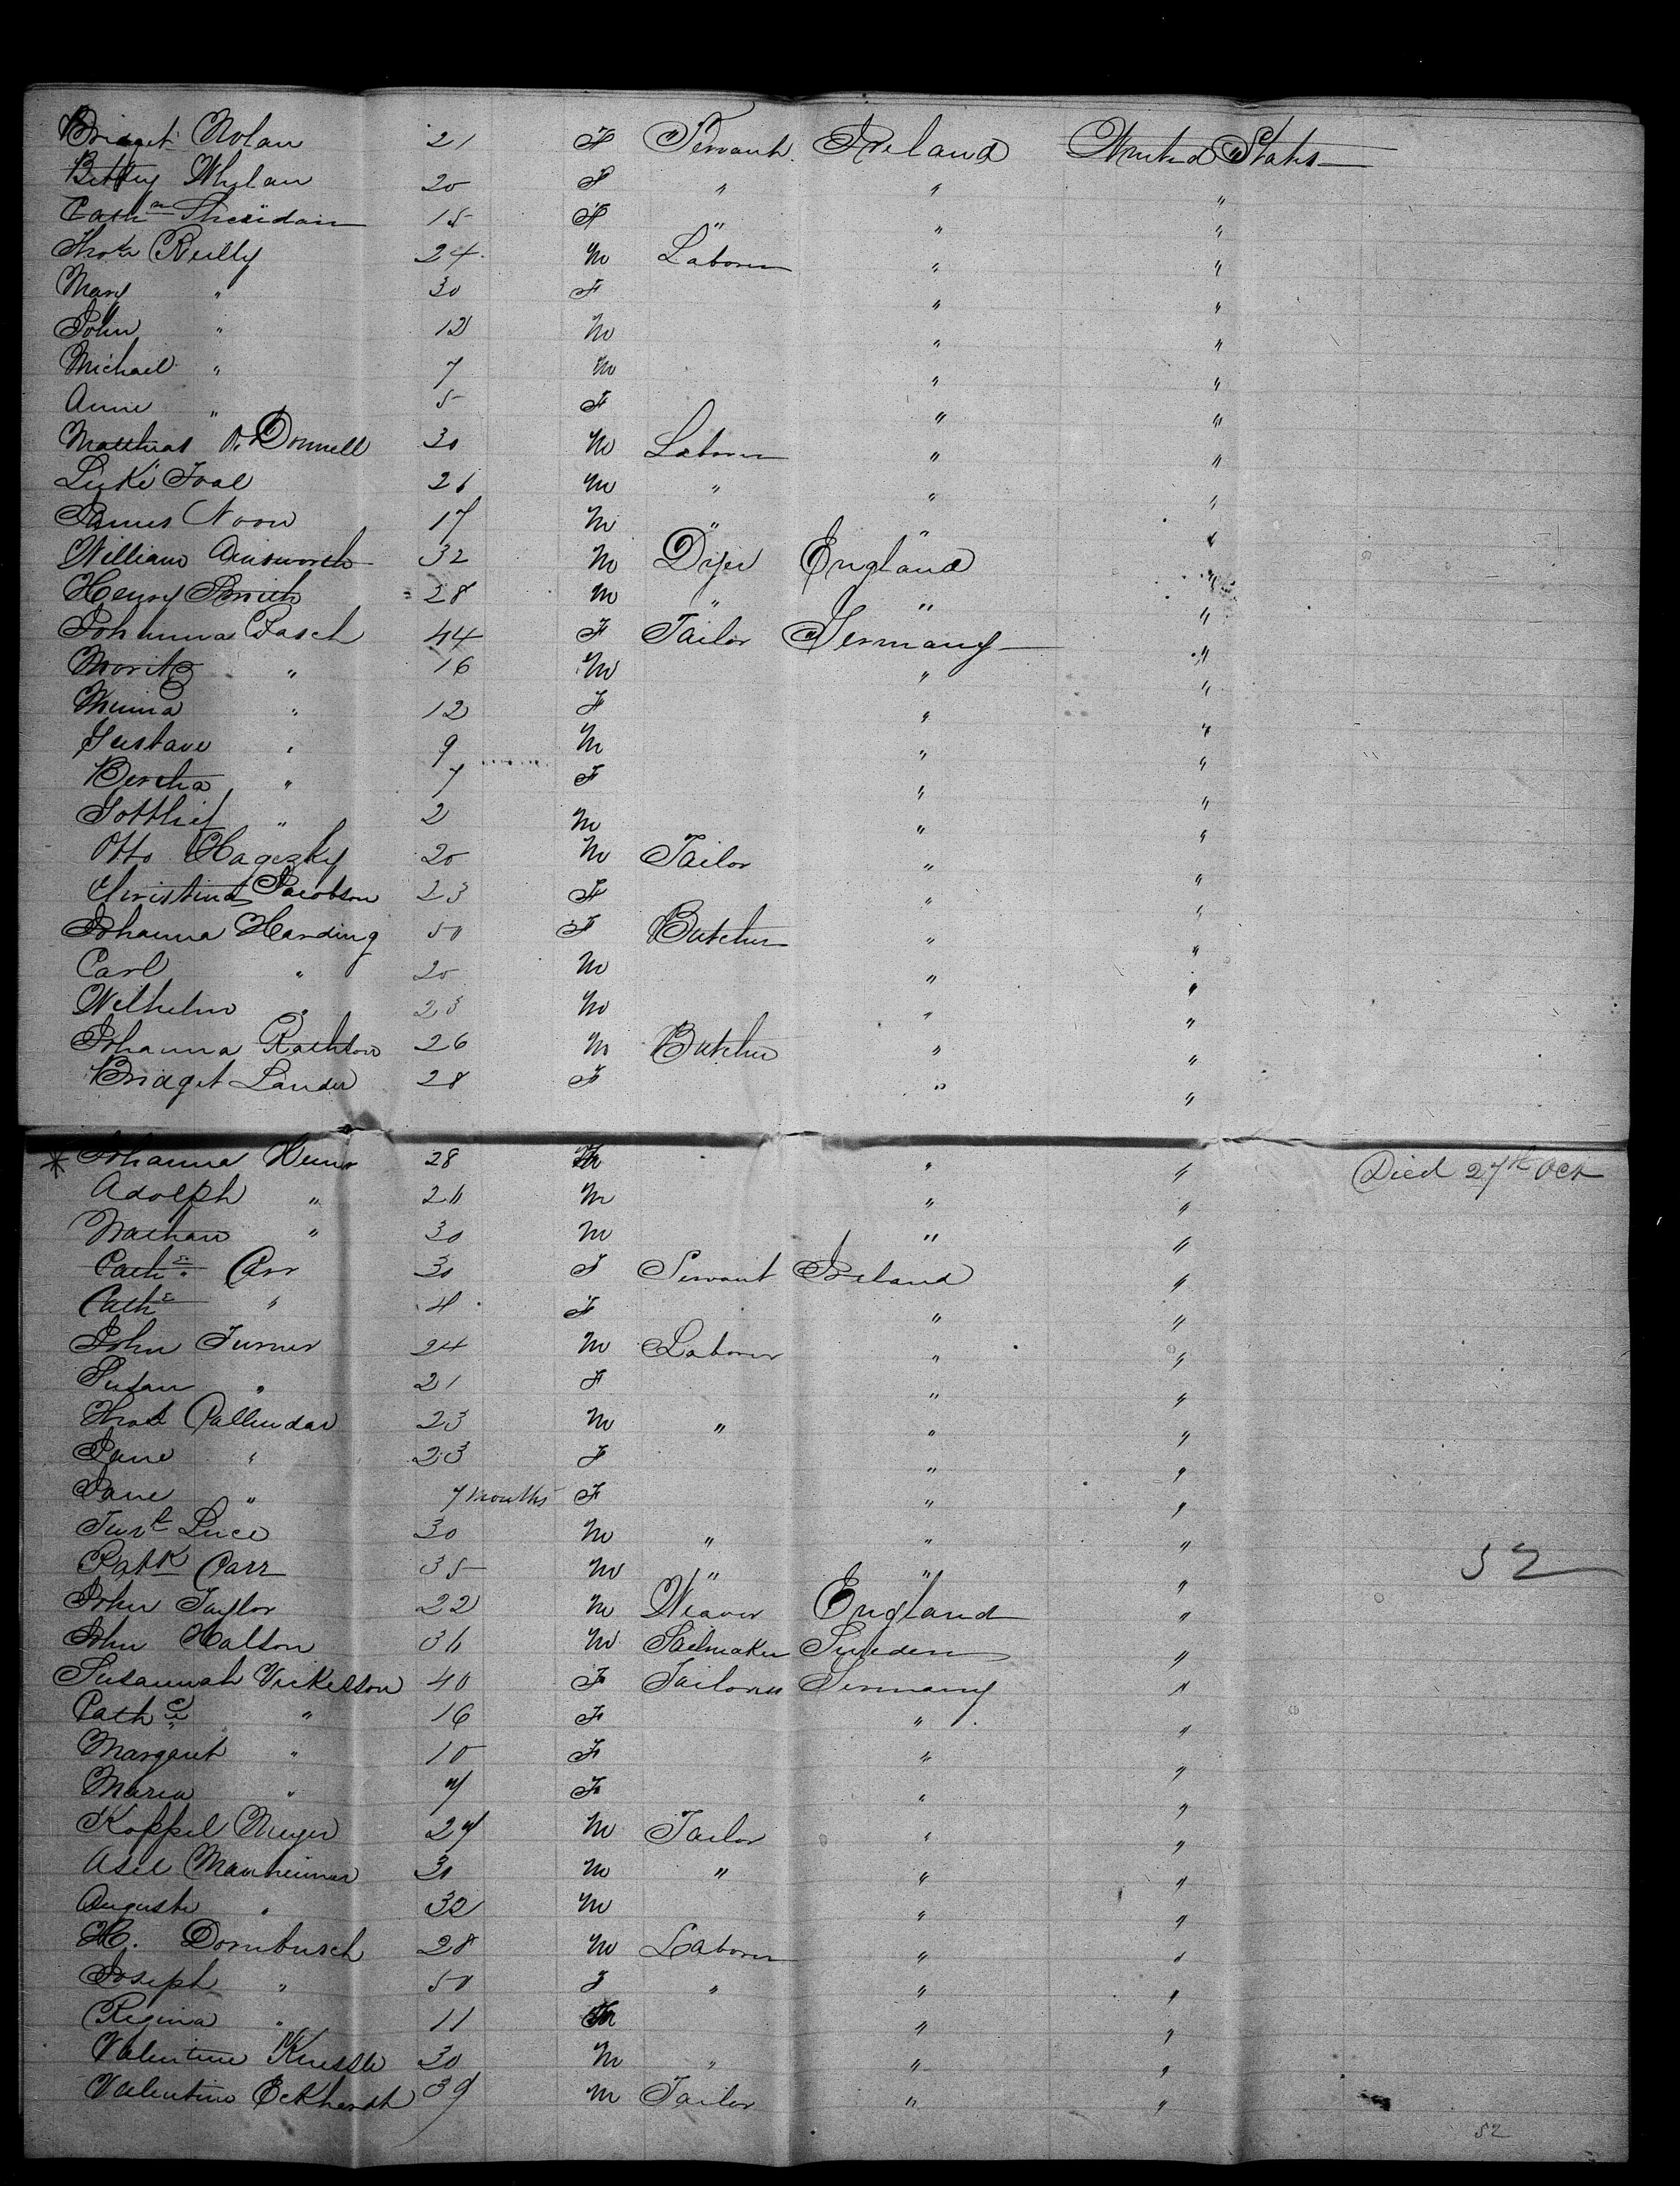 Bridget Nolan 21 F Servant Ireland United States
Betty Whelan 20 F " " "
Cath^n Sheridan 15 F " " "
Tho^s Reilly 24 M Laborer " "
Mary " 30 F " "
John " 12 M " "
Michael " 7 M " "
Anne " 5 F " "
Matthias O'Donnell 30 M Laborer " "
Luke Foal 26 M " " "
James Noon 17 M " " "
William Ainsworth 32 M Dyer England "
Henry Smith 28 M " " "
Johanna Pasch 44 F Tailor Germany "
Moritz " 16 M " "
Minna " 12 F " "
Gustave " 9 M " "
Bertha " 7 F " "
Gottlief " 2 M " "
Otto Hagezky 20 M Tailor " "
Christina Jacobson 23 F " "
Johanna Harding 50 F Butcher " "
Carl " 20 M " "
Wilhelm " 23 M " "
Johanna 26 M Butcher " "
Bridget Lander 28 F " "
* Johanna 28 " " Died 27th Oct
Adolph " 26 M " "
Nathan " 30 M " "
Cath^e Carr 30 F Servant Ireland "
Cath^e " 4 F " "
John Turner 24 M Laborer " "
Susan " 21 F " "
Tho^s Callendar 23 M " " "
Jane " 23 F " "
Jane " 7 months F " "
Luce 30 M " " "
Patk Carr 35 M " " " 52
John Taylor 22 M Weaver England "
John Halson 36 M Sailmaker Sweden "
Susannah Nickelson 40 F Tailoress Germany "
Cath^e " 16 F " "
Margaret " 10 F " "
Maria " 7 F " "
Koppel Meyer 27 M Tailor " "
Manheimer 30 M " " "
Auguste " 32 M " "
H. Dornbusch 28 M Laborer " "
Joseph " 50 F " " "
Regina " 11 " "
Valentine 30 M " " "
Valentine Eckhardt 39 M Tailor " "
52